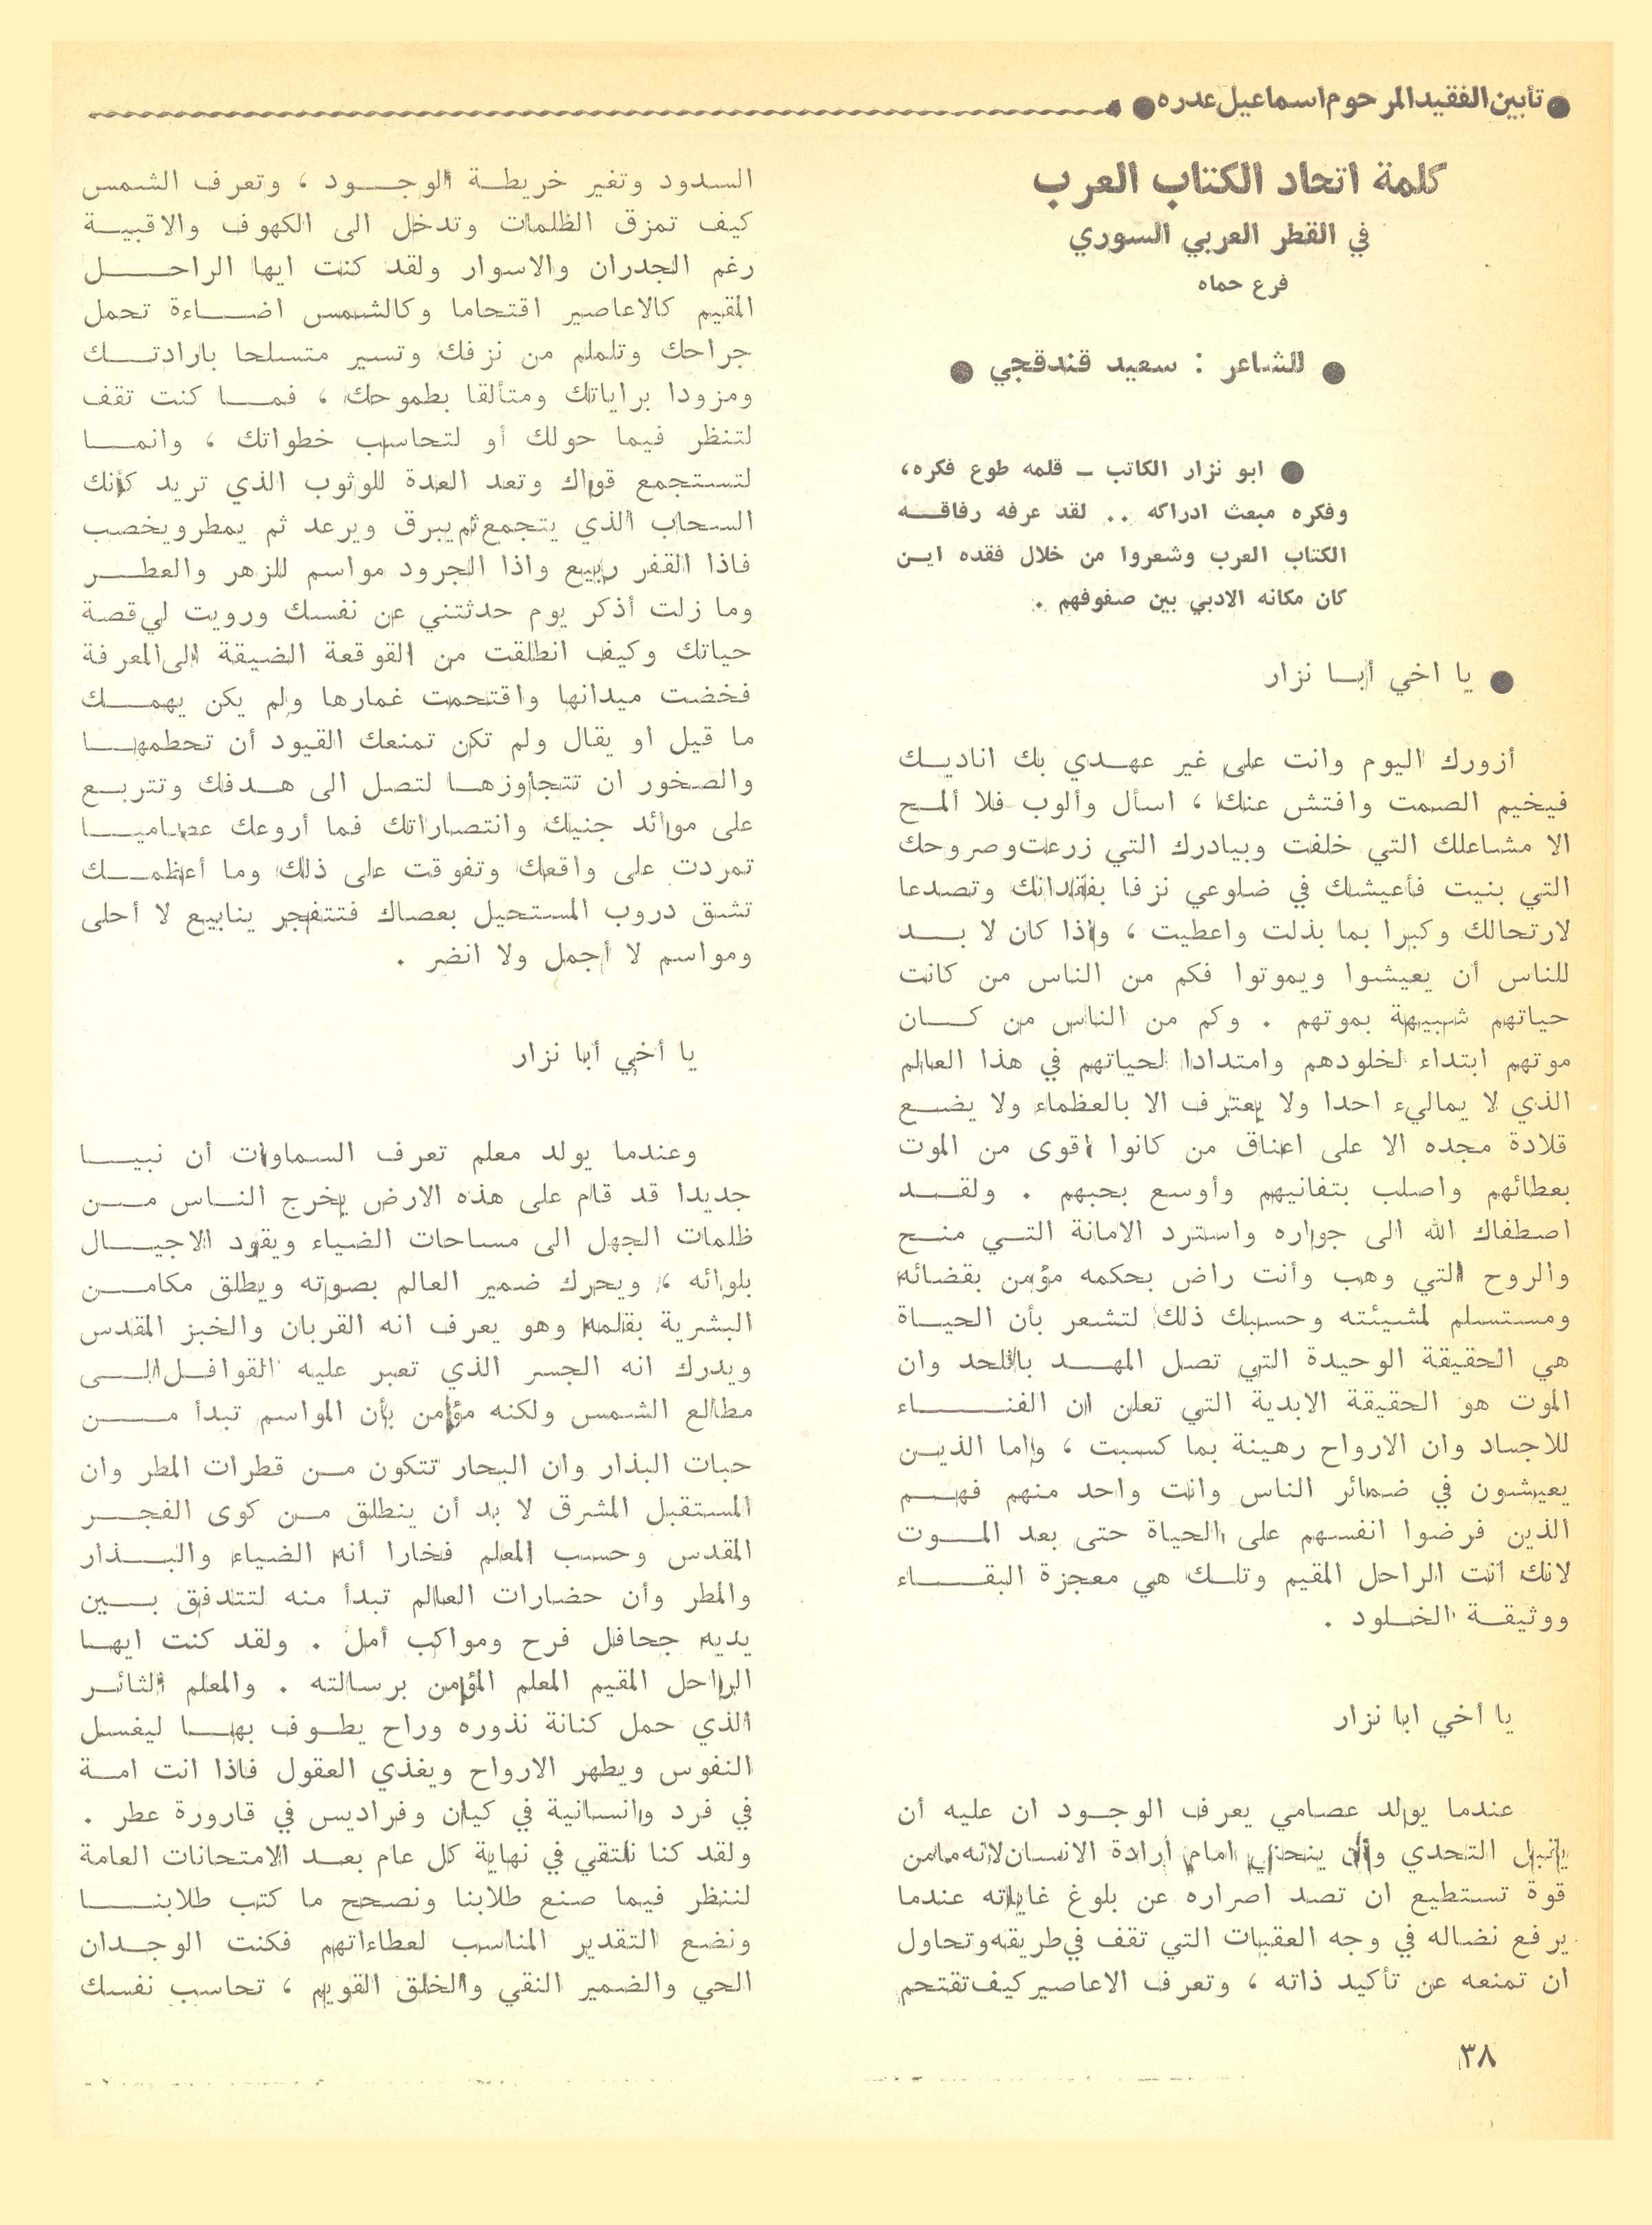 ● تأبين الفقيد المرحوم اسماعيل عدره ●
كلمة اتحاد الكتاب العرب
في القطر العربي السوري
فرع حماه
● للشاعر : سعيد قندقجي ●
● ابو نزار الكاتب ـ قلمه طوع فكره،
وفكره مبعث ادراكه .. لقد عرفه رفاقه
الكتاب العرب وشعروا من خلال فقده اين
كان مكانه الادبي بين صفوفهم .
● يا اخي أبا نزار
أزورك اليوم وانت على غير عهدي بك اناديك
فيخيم الصمت وافتش عنك ، اسأل وألوب فلا ألمح
الا مشاعلك التي خلفت وبيادرك التي زرعت وصروحك
التي بنيت فأعيشك في ضلوعي نزفا بفقدانك وتصدعا
لارتحالك وكبرا بما بذلت واعطيت ، واذا كان لا بد
للناس أن يعيشوا ويموتوا فكم من الناس من كانت
حياتهم شبيهة بموتهم . وكم من الناس من كان
موتهم ابتداء لخلودهم وامتدادا لحياتهم في هذا العالم
الذي لا يماليء احدا ولا يعترف الا بالعظماء ولا يضع
قلادة مجده الا على اعناق من كانوا اقوى من الموت
بعطائهم واصلب بتفانيهم وأوسع بحبهم . ولقد
اصطفاك الله الى جواره واسترد الامانة التي منح
والروح التي وهب وأنت راض بحكمه مؤمن بقضائه
ومستسلم لمشيئته وحسبك ذلك لتشعر بأن الحياة
هي الحقيقة الوحيدة التي تصل المهد باللحد وان
الموت هو الحقيقة الابدية التي تعلن ان الفناء
للاجساد وان الارواح رهينة بما كسبت ، واما الذين
يعيشون في ضمائر الناس وانت واحد منهم فهم
الذين فرضوا انفسهم على الحياة حتى بعد الموت
لانك أنت الراحل المقيم وتلك هي معجزة البقاء
ووثيقة الخلود .
يا أخي ابا نزار
عندما يولد عصامي يعرف الوجود ان عليه أن
يقبل التحدي وأن ينحني امام ارادة الانسان لانه مامن
قوة تستطيع ان تصد اصراره عن بلوغ غاياته عندما
يرفع نضاله في وجه العقبات التي تقف في طريقه وتحاول
ان تمنعه عن تأكيد ذاته ، وتعرف الاعاصير كيف تقتحم
السدود وتغير خريطة الوجود ، وتعرف الشمس
كيف تمزق الظلمات وتدخل الى الكهوف والاقبية
رغم الجدران والاسوار ولقد كنت ايها الراحل
المقيم كالاعاصير اقتحاما وكالشمس اضاءة تحمل
جراحك وتلملم من نزفك وتسير متسلحا بارادتك
ومزودا براياتك ومتألقا بطموحك ، فما كنت تقف
لتنظر فيما حولك أو لتحاسب خطواتك ، وانما
لتستجمع قواك وتعد العدة للوثوب الذي تريد كأنك
السحاب الذي يتجمع ثم يبرق ويرعد ثم يمطر ويخصب
فاذا القفر ربيع واذا الجرود مواسم للزهر والعطر
وما زلت أذكر يوم حدثتني عن نفسك ورويت لي قصة
حياتك وكيف انطلقت من القوقعة الضيقة الى المعرفة
فخضت ميدانها واقتحمت غمارها ولم يكن يهمك
ما قيل او يقال ولم تكن تمنعك القيود أن تحطمها
والصخور ان تتجاوزها لتصل الى هدفك وتتربع
على موائد جنيك وانتصاراتك فما أروعك عصاميا
تمردت على واقعك وتفوقت على ذلك وما أعظمك
تشق دروب المستحيل بعصاك فتتفجر ينابيع لا أحلى
ومواسم لا أجمل ولا انضر .
يا أخي أبا نزار
وعندما يولد معلم تعرف السماوات أن نبيا
جديدا قد قام على هذه الارض يخرج الناس من
ظلمات الجهل الى مساحات الضياء ويقود الاجيال
بلوائه ، ويحرك ضمير العالم بصوته ويطلق مكامن
البشرية بقلمه وهو يعرف انه القربان والخبز المقدس
ويدرك انه الجسر الذي تعبر عليه القوافل الى
مطالع الشمس ولكنه مؤمن بأن المواسم تبدأ من
حبات البذار وان البحار تتكون من قطرات المطر وان
المستقبل المشرق لا بد أن ينطلق من كوى الفجر
المقدس وحسب المعلم فخارا أنه الضياء والبذار
والمطر وأن حضارات العالم تبدأ منه لتتدفق بين
يديه جحافل فرح ومواكب أمل . ولقد كنت ايها
الراحل المقيم المعلم المؤمن برسالته . والمعلم الثائر
الذي حمل كنانة نذوره وراح يطوف بها ليغسل
النفوس ويطهر الارواح ويغذي العقول فاذا انت امة
في فرد وانسانية في كيان وفراديس في قارورة عطر .
ولقد كنا نلتقي في نهاية كل عام بعد الامتحانات العامة
لننظر فيما صنع طلابنا ونصحح ما كتب طلابنا
ونضع التقدير المناسب لعطاءاتهم فكنت الوجدان
الحي والضمير النقي والخلق القويم ، تحاسب نفسك
٣٨